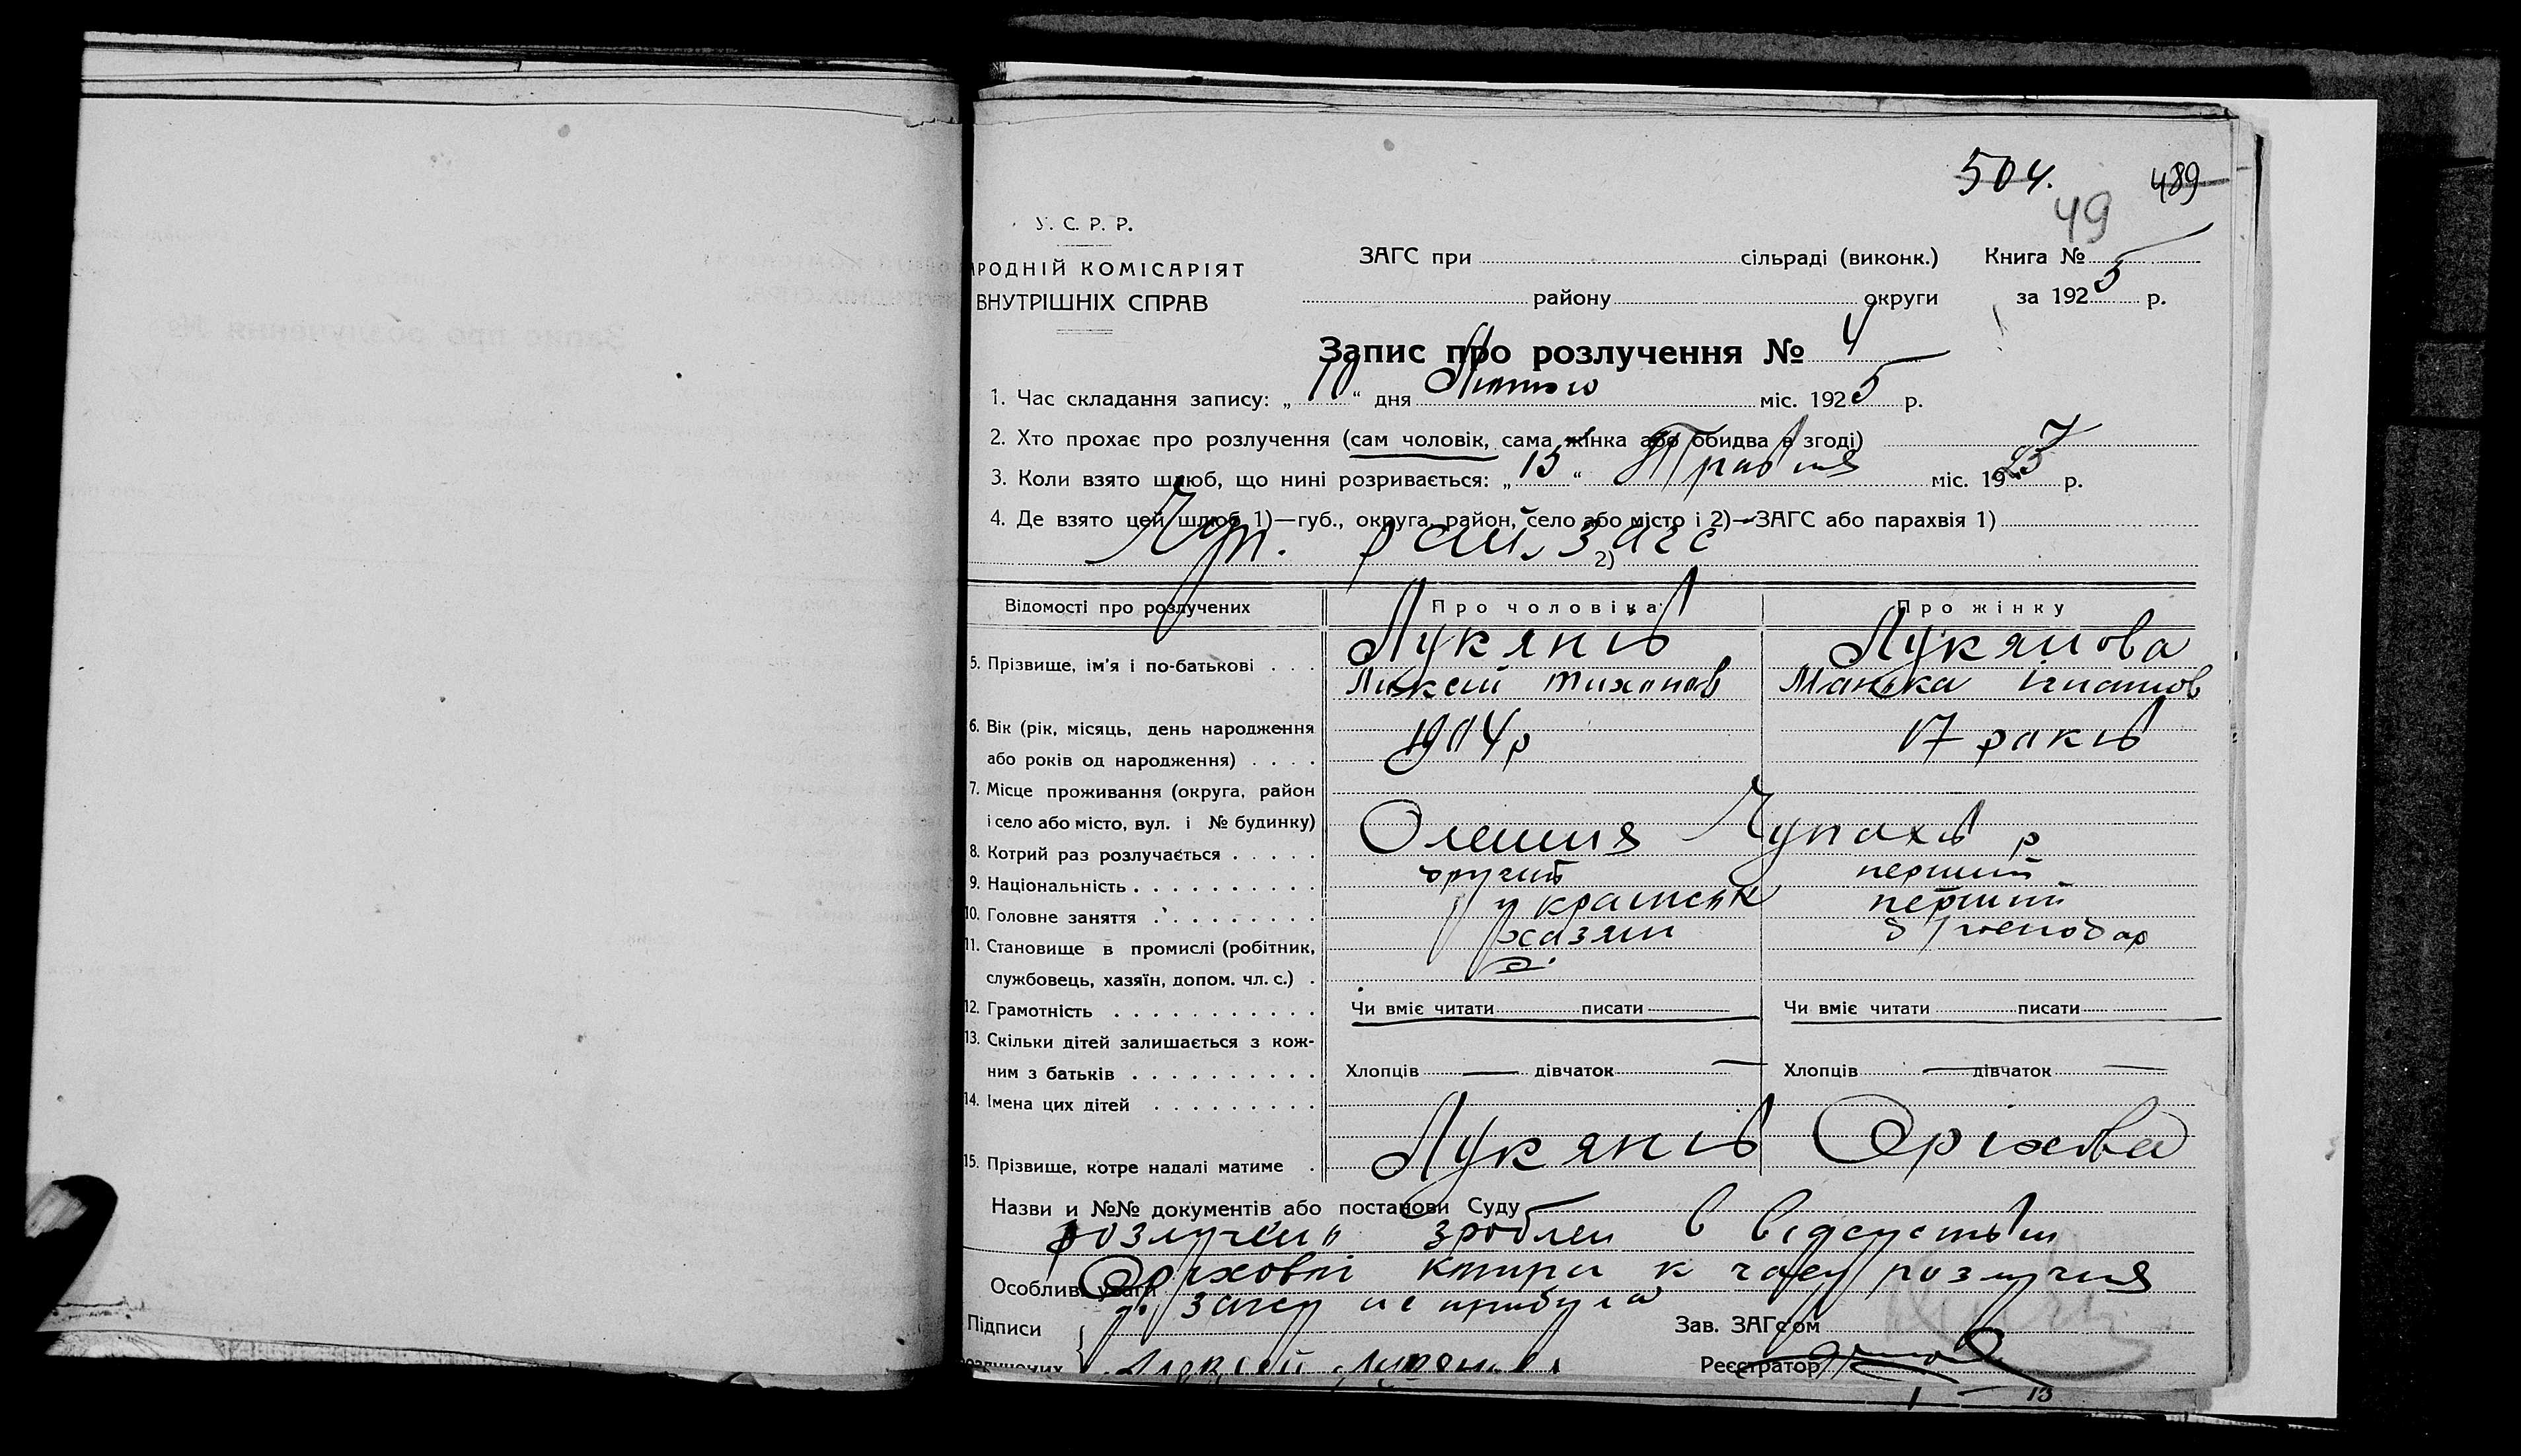 504. 489
49
У. С. Р. Р.
РОДНІЙ КОМІСАРІЯТ
ВНУТРІШНІХ СПРАВ
ЗАГС при сільраді (виконк.) Книга №
району округи за 1925 р.
Запис про розлучення № 4
1. Час складання запису: „ “ дня Лютого міс. 1925 р.
2. Хто прохає про розлучення (сам чоловік, сама жінка або обидва в згоді)
3. Коли взято шлюб, що нині розривається: „15“ Травня міс. 19 р.
4. Де взято цей шлюб 1)—губ., округа, район, село або місто і 2)—ЗАГС або парахвія 1)
Чуп. рай. загс 2)
Відомості про розлучених Про чоловіка Про жінку
5. Прізвище, ім'я і по-батькові . . . Лукянів Лукянова
Тихонов
6. Вік (рік, місяць, день народження
або років од народження) . . . . 1904 р 17 років
7. Місце проживання (округа, район
і село або місто, вул. і № будинку) Олешня Чупахів р
8. Котрий раз розлучається . . . . . другий перший
9. Національність . . . . . . . . . . українськ перший
10. Головне заняття . . . . . . . . . хазяін
11. Становище в промислі (робітник,
службовець, хазяїн, допом. чл. с.) .
12. Грамотність . . . . . . . . . . . Чи вміє читати писати Чи вміє читати писати
13. Скільки дітей залишається з кож-
ним з батьків . . . . . . . . . . Хлопців — дівчаток — Хлопців — дівчаток —
14. Імена цих дітей . . . . . . . . .
15. Прізвище, котре надалі матиме . Лукянів Оріхова
Назви и №№ документів або постанови Суду
зроблен в
Особливі уваги Оріховоі к часу розлучня
до загсу не прибула
Підписи Зав. ЗАГс'ом
Реєстратор